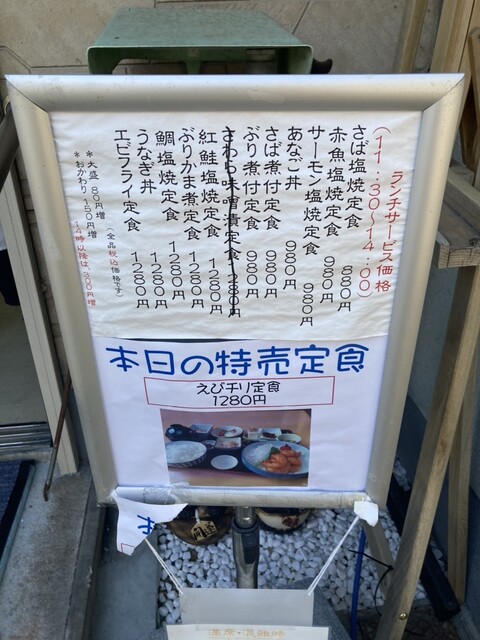 ランチサービス価格
(11:30~14:00)
さば塩焼定食 880円
赤魚塩焼定食 980円
サーモン塩焼定食 980円
あなご丼 980円
さば煮付定食 980円
ぶり煮付定食 980円
さわら味噌漬定食 1280円
紅鮭塩焼定食 1280円
ぶりかま煮定食 1280円
鯛塩焼定食 1280円
うなぎ丼 1280円
エビフライ定食 1280円
(全品税込価格です)
*大盛 80円増
*おかわり 150円増
14時以降は、300円増
本日の特売定食
えびチリ定食
1280円
本
満席・混雑時